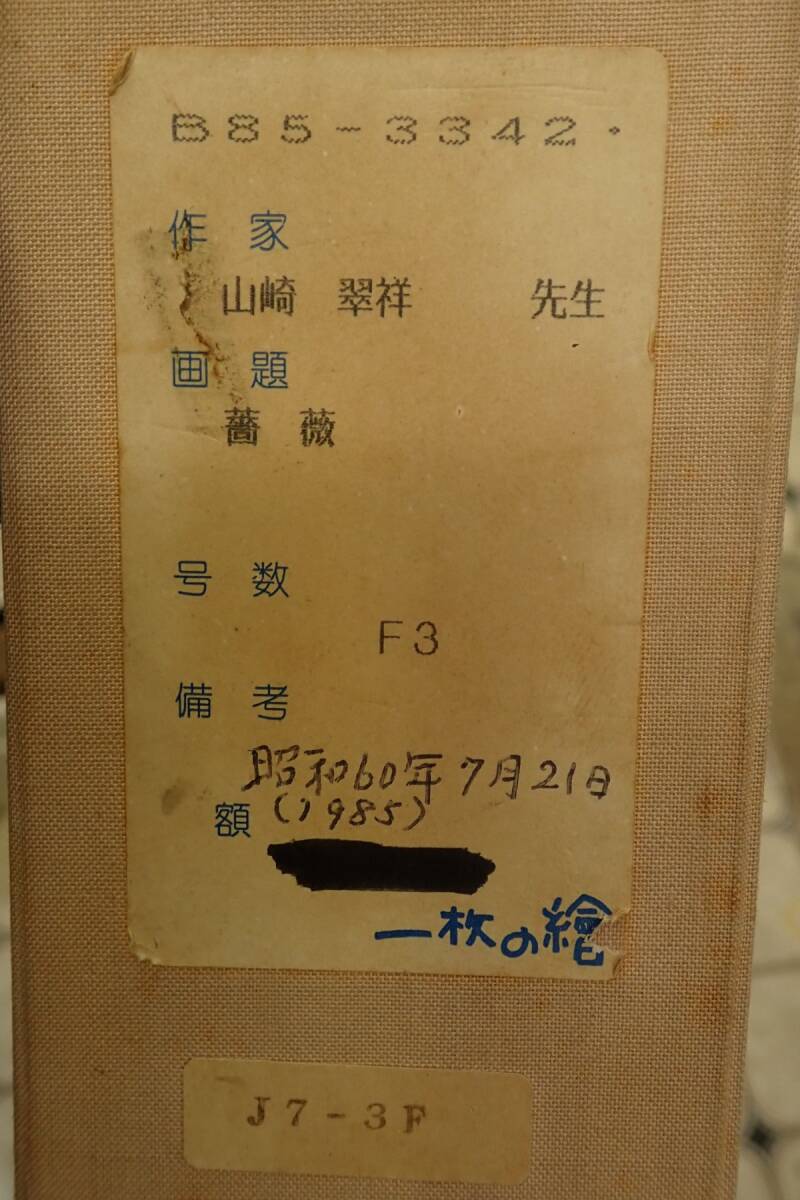 B85-3342.
作家
山崎 翠祥 先生
画題
薔薇
号数
F3
備考
昭和60年7月21日
額 (1985)
一枚の繪
J7-3F